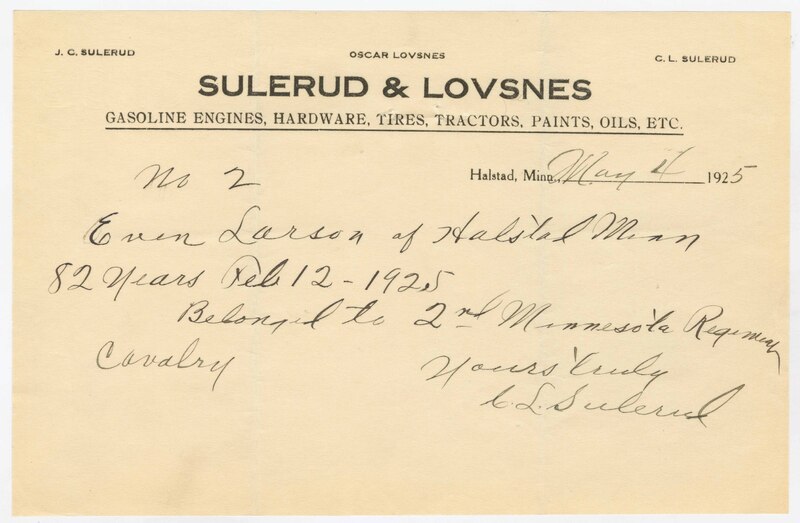 J. C. SULERUD
OSCAR LOVSNES
C. L. SULERUD
SULERUD & LOVSNES
GASOLINE ENGINES, HARDWARE, TIRES, TRACTORS, PAINTS, OILS, ETC.
No 2
Halstad, Minn. May 4 1925
Even Larson of Halstad Minn
82 Years Feb 12 - 1925
Belonged to 2nd Minnesota Regiment
Cavalry
Yours truly
C. L. Sulerud